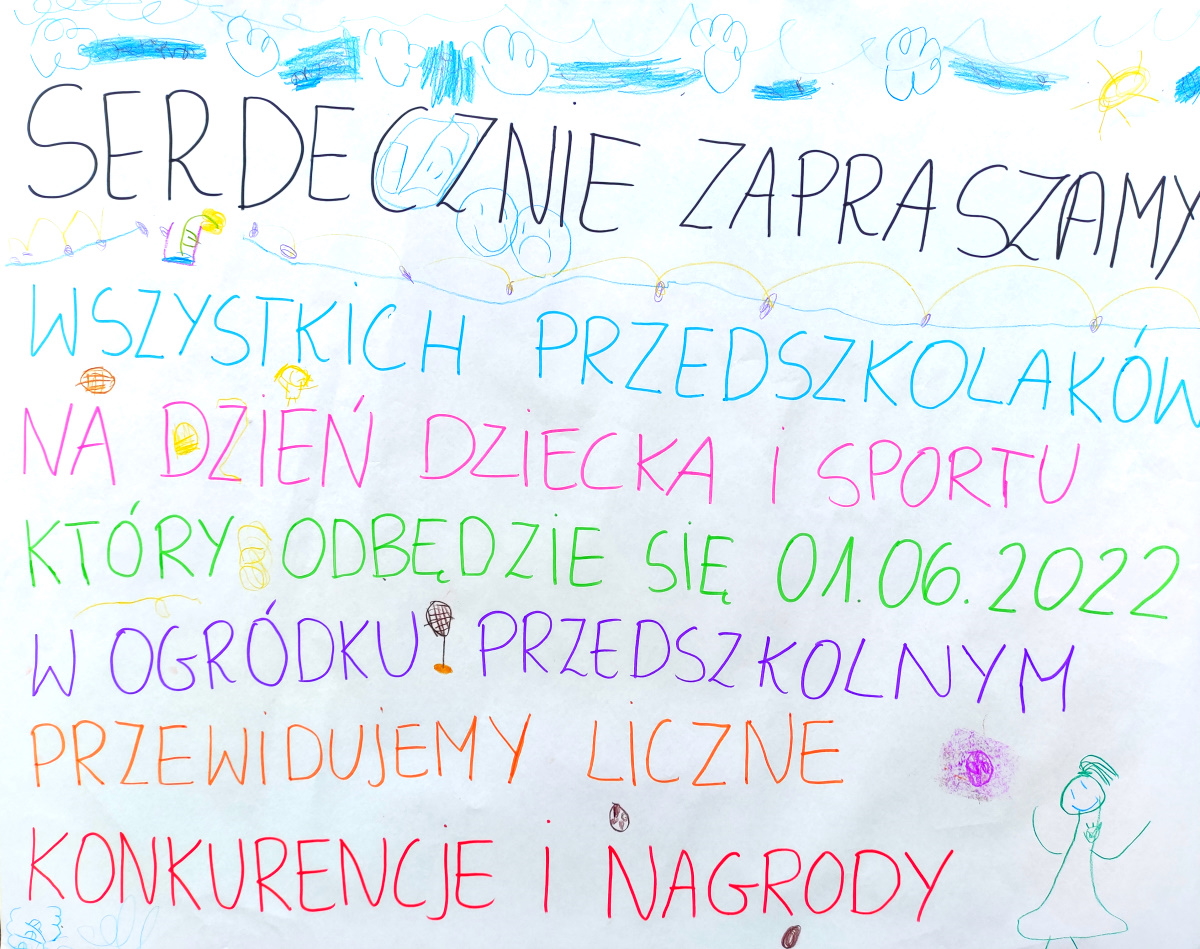 SERDECZNIE ZAPRASZAMY
WSZYSTKICH PRZEDSZKOLAKÓW
NA DZIEŃ DZIECKA I SPORTU
KTÓRY ODBĘDZIE SIĘ 01.06.2022
W OGRÓDKU PRZEDSZKOLNYM
PRZEWIDUJEMY LICZNE
KONKURENCJE I NAGRODY